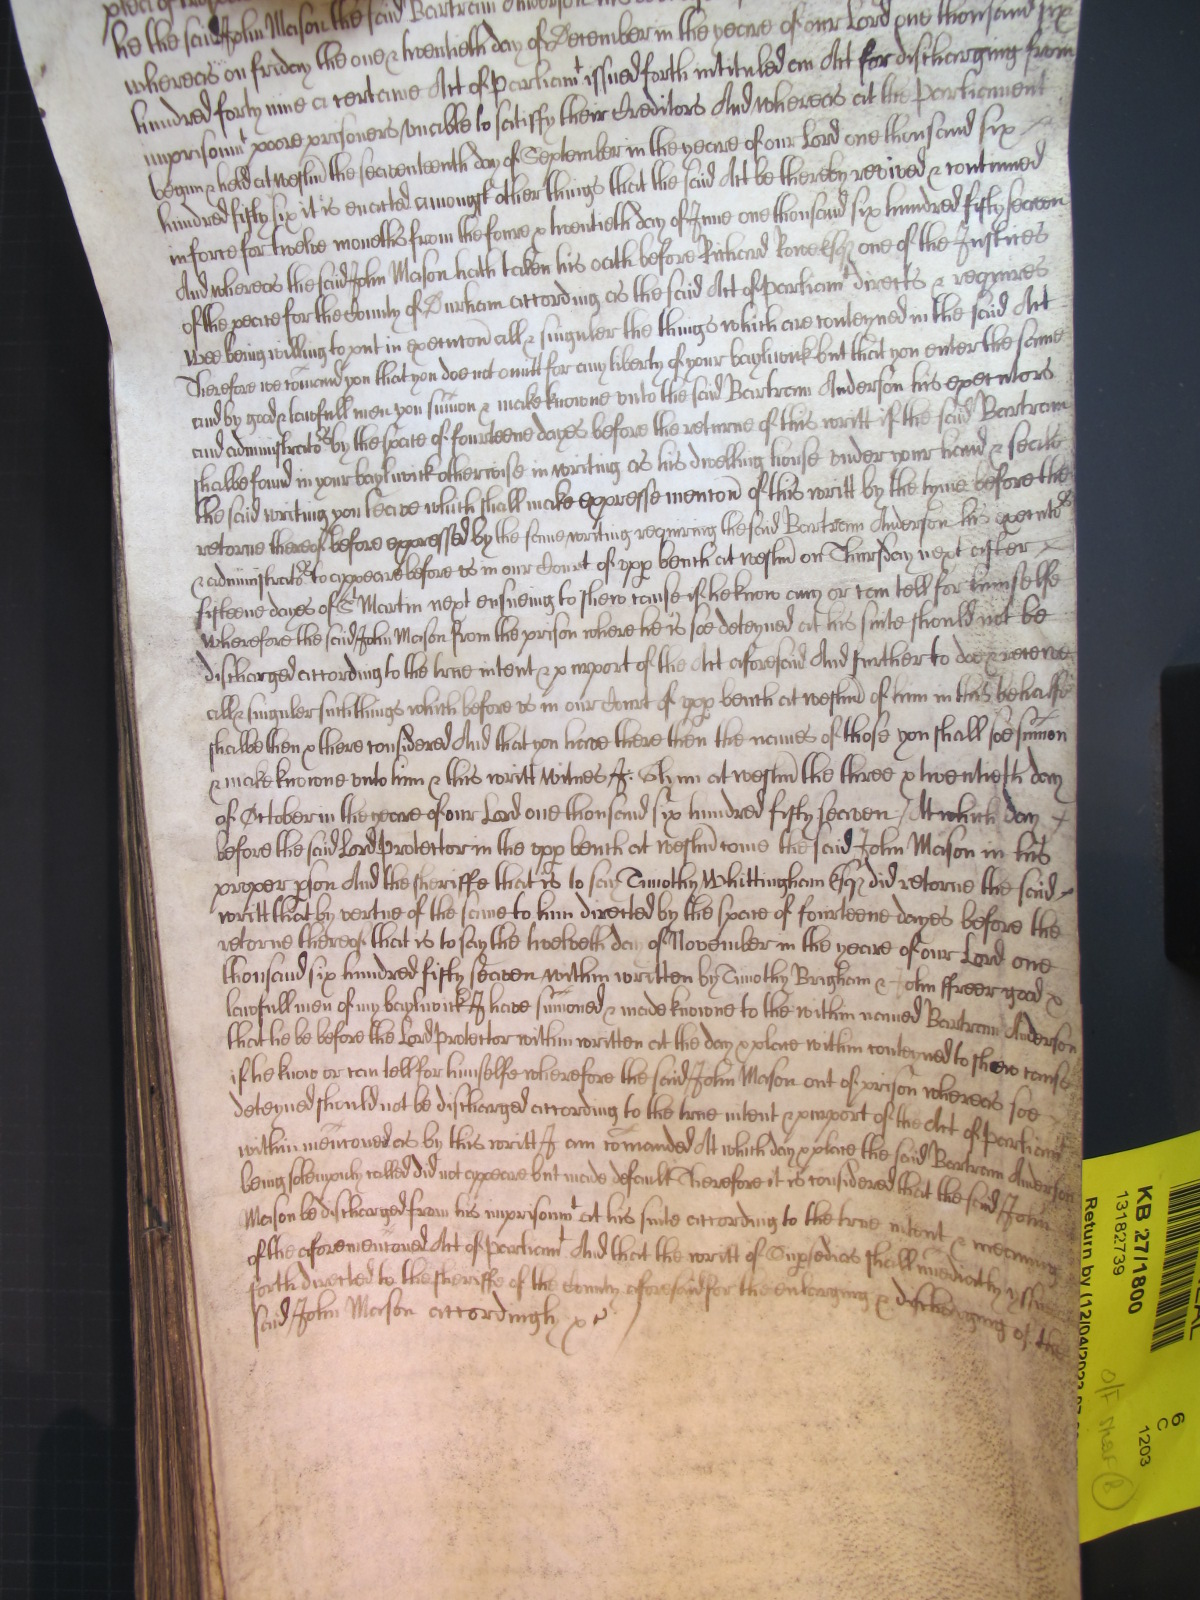 he the said John Mason the said Bartram Anderson
whereas on friday the one & twentieth day of December in the yeare of our Lord one thousand six
hundred forty nine a certaine Act of Parliamt issued forth intituled an Act for discharging from
imprisonmt poore prisoners unable to satisfy their Creditors And whereas at the Parliament
begun & held at westm the seaventeenth day of September in the yeare of our Lord one thousand six
hundred fifty six it is enacted amongst other things that the said Act be thereby revived & continued
in force for twelve moneths from the fowre & twentieth day of June one thousand six hundred fifty seaven
And whereas the said John Mason hath taken his oath before Richard Rowe Esqr one of the Justices
of the peace for the County of Durham according as the said Act of Parliamt directs & requires
wee being willing to put in execucon all & singuler the things which are conteyned in the said Act
Therefore we comand you that you doe not omitt for any liberty of your bayliwick but that you enter the same
and by good & lawfull men you sumon & make knowne unto the said Bartram Anderson his executors
and administrators by the space of fourteene dayes before the returne of this writt if the said Bartram
shalbe found in your bayliwick otherwise in writing as his dwelling house under your hand & seale
the said writing you leave which shall make expresse mencon of this writt by the tyme before the
retorne thereof before expressed by the same writing requiring the said Bartram Anderson his executors
& administrators to appeare before us in our Court of upp bench at westm on Thursday next after
fifteene dayes of St Martin next ensueing to shew cause if he know any or can tell for himselfe
wherefore the said John Mason from the prison where he is soe deteyned at his suite should not be
discharged according to the true intent & purport of the Act aforesaid And further to doe & receive
all & singuler such things which before us in our Court of upp bench at westm of him in this behalfe
shalbe then & there considered And that you have there then the names of those you shall soe sumon
& make knowne unto him & this writt Witnes J: Glynn at westm the three & twentieth day
of October in the yeare of our Lord one thousand six hundred fifty seaven / At which day
before the said Lord Protector in the upp bench at westm come the said John Mason in his
proper pson And the sheriffe that is to say Timothy Whittingham Esqr did retorne the said
writt that by vertue of the same to him directed by the space of fourteene dayes before the
retorne thereof that is to say the twelveth day of November in the yeare of our Lord one
thousand six hundred fifty seaven within written by Timothy Brigham & John ffreer good &
lawfull men of my bayliwick I have sumoned & made knowne to the within named Bartram Anderson
that he be before the Lord Protector within written at the day & place within conteyned to shew cause
if he know or can tell for himselfe wherefore the said John Mason out of prison whereas soe
deteyned should not be discharged according to the true intent & purport of the Act of Parliamt
within menconed as by this writt I am comanded At which day & place the said Bartram Anderson
being solempnly called did not appeare but made default Therefore it is considered that the said John
Mason be discharged from his imprisonmt at his suite according to the true intent & meaning
of the aforemenconed Act of Parliamt And that the writt of Supsedeas shall imediatly yssue
forth directed to the sheriffe of the County aforesaid for the enlarging & discharging of the
said John Mason accordingly &c
KB 27/1800
13182739
Return by (12/04/2023
6
C
1203